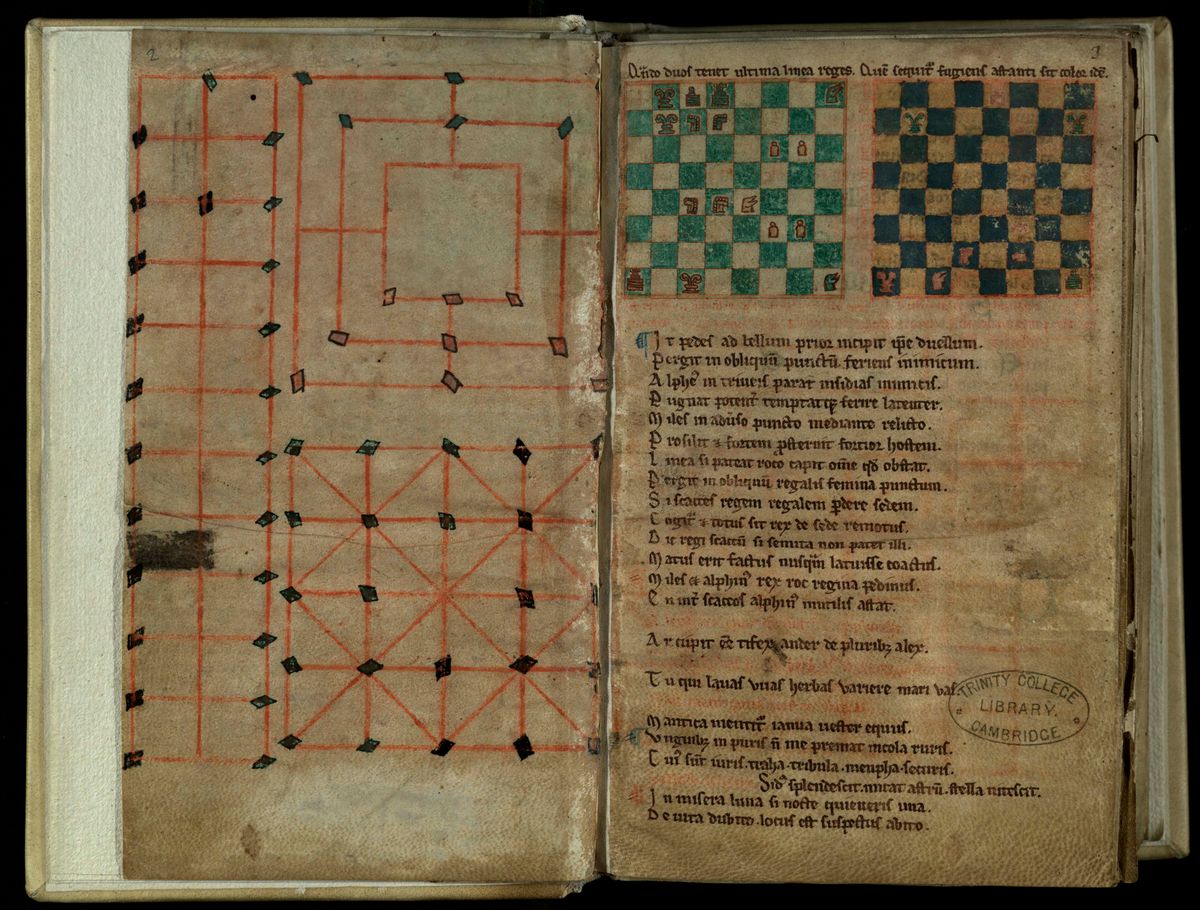 2
3
Qn̄do duos tenet ultima linea reges. Quē sequit᷑ fugiens astanti sit color idē.
It pedes ad bellum prior incipit ip̄e duellum.
Pergit in obliquū punctū feriens inimicum.
Alphē in triuiis parat insidias inimicis.
Pugnat potent᷑ temptatqꝫ ferire latenter.
Miles in aduso puncto mediante relicto.
Prosilit ⁊ fortem ꝓsternit fortior hostem.
Linea si pateat roco capit om̄e qd̄ obstat.
Pergit in obliquū regalis femina punctum.
Si scacces regem regalem ꝑdere sedem.
Cogit᷑ ⁊ totus sit rex de sede remotus.
Dic regi scaccū si semita non patet illi.
Matus erit factus nusquā latuisse coactus.
Miles & alphinꝰ rex roc regina pedinus.
En int̄ scaccos alphinꝰ inutilis astat.
Arcupit eē tifex ander de pluribꝫ alex.
Tu qui lauas uuas herbas variere mari
Mantica mentit᷑ ianua uester equus.
Vnguibꝫ in puris n̄ me premat incola ruris.
Cuiꝰ sūt iuris. traha. tribula. meupha. securis.
Sidꝰ splendescit. micat astrū. stella nitescit.
In misera luna si nocte quieueris una.
De uita dubito. locus est suspectus abito.
TRINITY COLLEGE
LIBRARY.
CAMBRIDGE